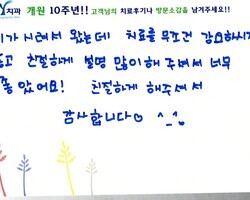 치과 개원 10주년!! 고객님의 치료후기나 방문소감을 남겨주세요!!
가 시려서 왔는데 치료를 무조건 강요하시
고 친절하게 설명 많이 해 주셔서 너무
좋았어요! 친절하게 해주셔서
감사합니다♡ ^_^